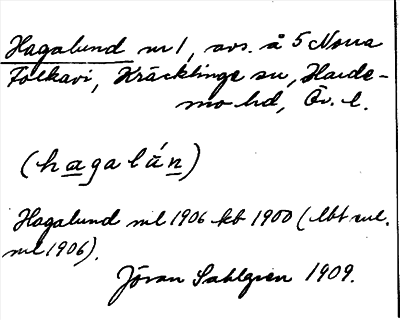 Hagalund nr 1, avs. å 5 Norra
Folkavi, Kräcklinge sn, Harde-
mo hd, Ör. l.
(hagalún)
Hagalund ml 1906 kb 1900 (lbt
ml 1906).
Jöran Sahlgren 1909.